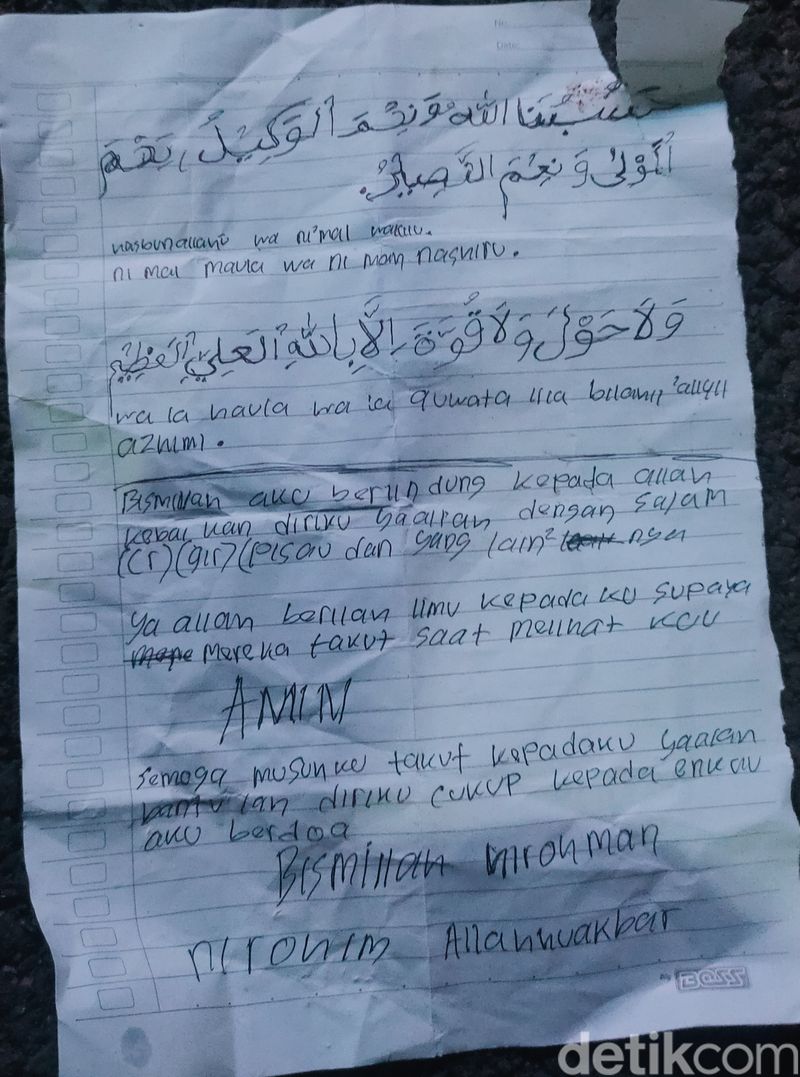 No:
Date:
حَسْبُنَا اللهُ وَنِعْمَ الْوَكِيْلُ، نِعْمَ
الْمَوْلَى وَنِعْمَ النَّصِيْرُ.
hasbunallahu wa ni'mal wakilu.
ni mal maula wa ni mam nashiru.
وَلاَ حَوْلَ وَلاَ قُوَّةَ إِلاَّ بِاللهِ الْعَلِيِّ الْعَظِيْمِ
wa la haula wa la quwata illa billahil 'aliyil
azhimi.
Bismillah aku berlindung kepada allah
kebalkan diriku yaallah dengan sajam
(Cr) (gir) (pisau dan yang lain² nya
ya allah berilah ilmu kepada ku supaya
mereka takut saat melihat kau
AMIN
semoga musuh ku takut kepadaku yaallah
bantu lah diriku cukup kepada enkau
aku berdoa
Bismillah hirohman
nirohim Allahhuakbar
BOSS
detikcom